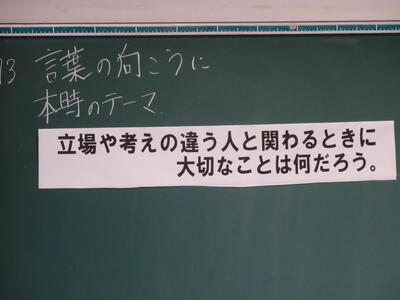 13 言葉の向こうに
本時のテーマ
立場や考えの違う人と関わるときに
大切なことは何だろう。